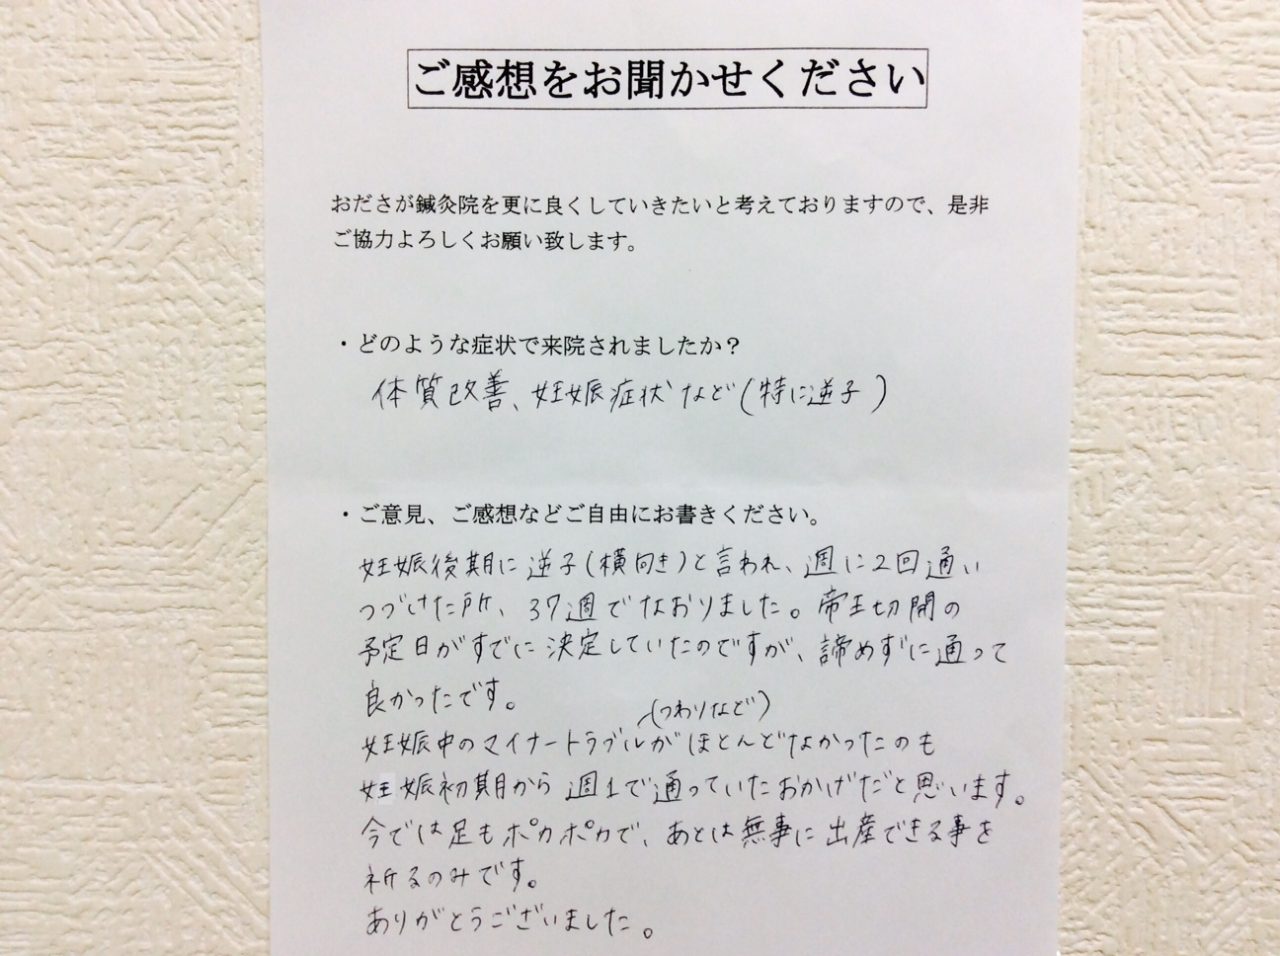 ご感想をお聞かせください
おださが鍼灸院を更に良くしていきたいと考えておりますので、是非
ご協力よろしくお願い致します。
・どのような症状で来院されましたか？
体質改善、妊娠症状など(特に逆子)
・ご意見、ご感想などご自由にお書きください。
妊娠後期に逆子(横向き)と言われ、週に2回通い
つづけた所、37週でなおりました。帝王切開の
予定日がすでに決定していたのですが、諦めずに通って
良かったです。
(つわりなど)
妊娠中のマイナートラブルがほとんどなかったのも
妊娠初期から週1で通っていたおかげだと思います。
今では足もポカポカで、あとは無事に出産できる事を
祈るのみです。
ありがとうございました。